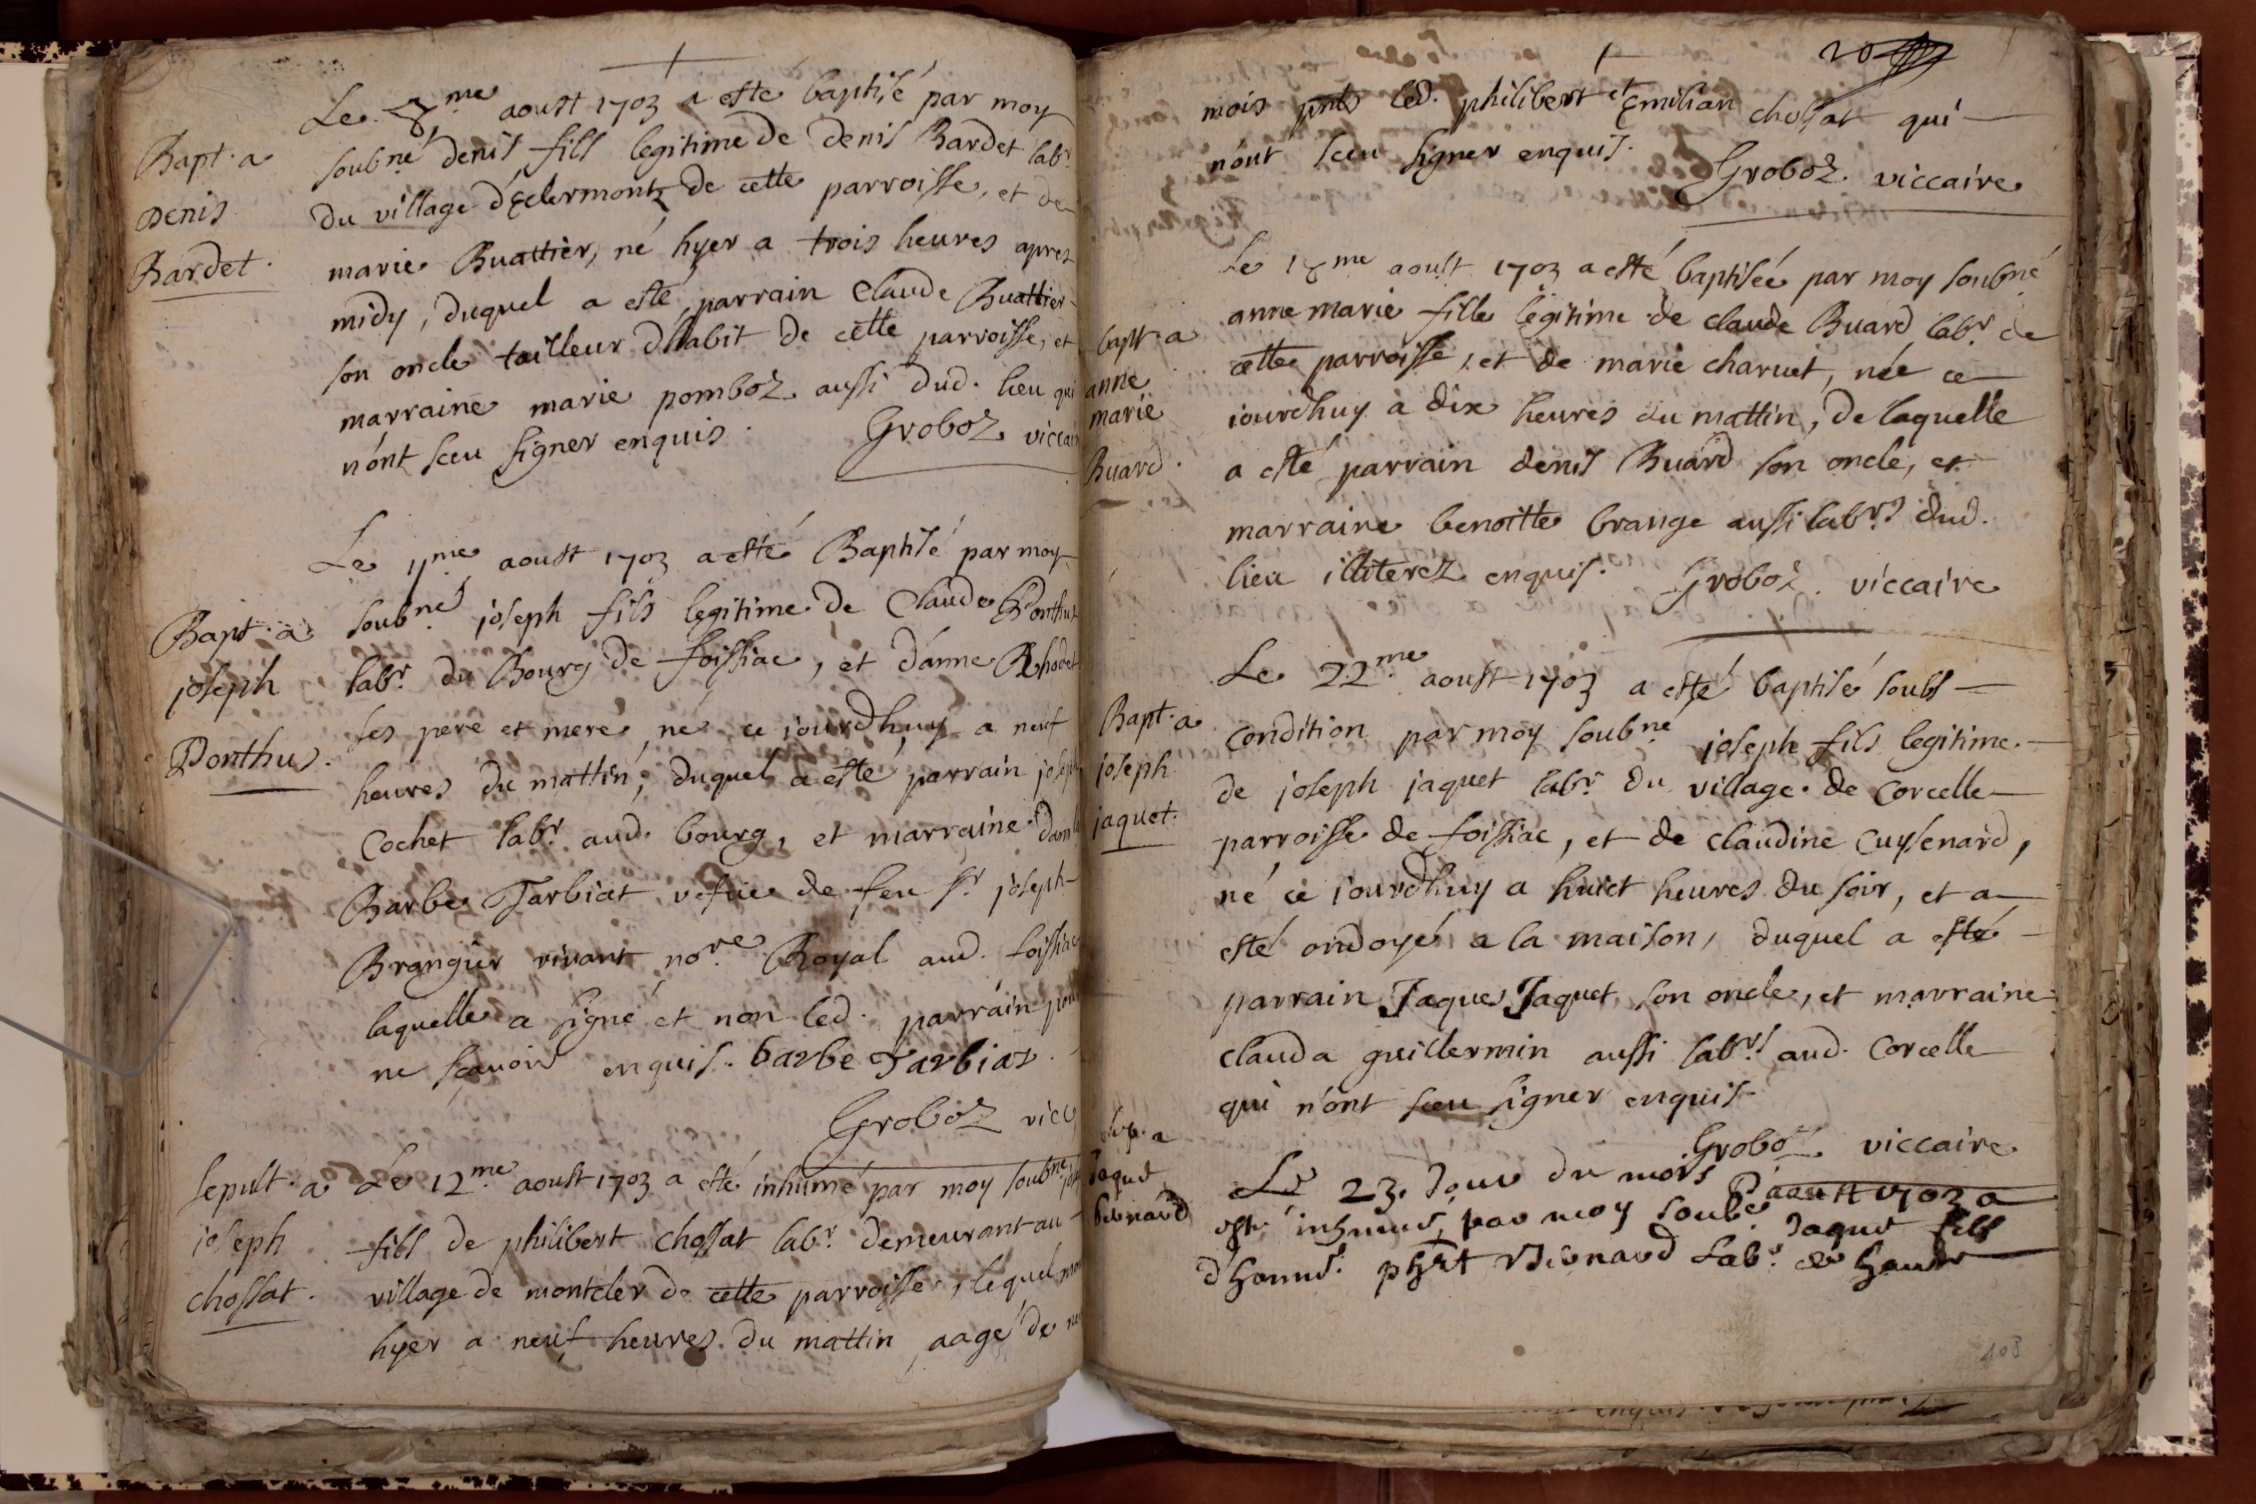 Bapt. a
Denis
Bardet.
Le 8.me aoust 1703 a esté baptisé par moy
soubné, denis fils legitime de denis Bardet labr
du village d'Eclermontz de cette parroisse, et de
marie Buattier, né hyer a trois heures apres
midy, duquel a esté parrain Claude Buattier
son oncle tailleur dhabit de cette parroisse, et
marraine marie pomboz aussi dud. lieu qui
n'ont sceu signer enquis. Groboz viccai
Bapt. a
joseph
Ponthus.
Le 11me aoust 1703 a esté Baptisé par moy
soubné joseph fils legitime de Claude Ponthus
labr. du Bourg de foissiac, et d'anne Rhodet
ses pere et mere, né ce jourdhuy a neuf
heures du mattin, duquel a esté parrain joseph
Cochet labr. aud. bourg, et marraine dam
Barbe Tarbiat vefue de feu sr. joseph
Brangier vivant nore Royal aud. foissiac
laquelle a signé et non led. parrain pour
ne sçavoir enquis. barbe Tarbiat.
Groboz vicc
Sepult. a
joseph
chossat.
Le 12.me aoust 1703 a esté inhumé par moy soubné
fils de philibert chossat labr. demeurant au
village de montcler de cette parroisse, lequel
hyer a neuf heures du mattin, aagé de
20
mois pnts led. philibert et Emilian chossat qui
n'ont sceu signer enquis.
Groboz. viccaire
bapt. a
anne
marie
Buard.
Le 18me aoust 1703 a esté baptisée par moy soubné
anne marie fille legitime de claude Buard labr. de
cette parroisse, et de marie charuet, née ce
jourdhuy a dix heures du mattin, de laquelle
a esté parrain denis Buard son oncle, et
marraine benoitte brange aussi labrs dud.
lieu illiterez enquis. Groboz. viccaire
Bapt. a
joseph
jaquet.
Le 22.me aoust 1703 a esté baptisé soubs
condition par moy soubné joseph fils legitime
de joseph jaquet labr. du village de Corcelle
parroisse de foissiac, et de claudine Cuysenard,
né ce jourdhuy a huict heures du soir, et a
esté ondoyé a la maison, duquel a esté
parrain Jaques Jaquet son oncle, et marraine
clauda guillermin aussi labrs. aud. Corcelle
qui n'ont sceu signer enquis.
Groboz. viccaire
a
Jaque
bernard
Le 23. Jour du mois d'aoust 1703 a
esté inhumé par moy soubé Jaque fils
d'honns. phbt Bernard Labr. de
103